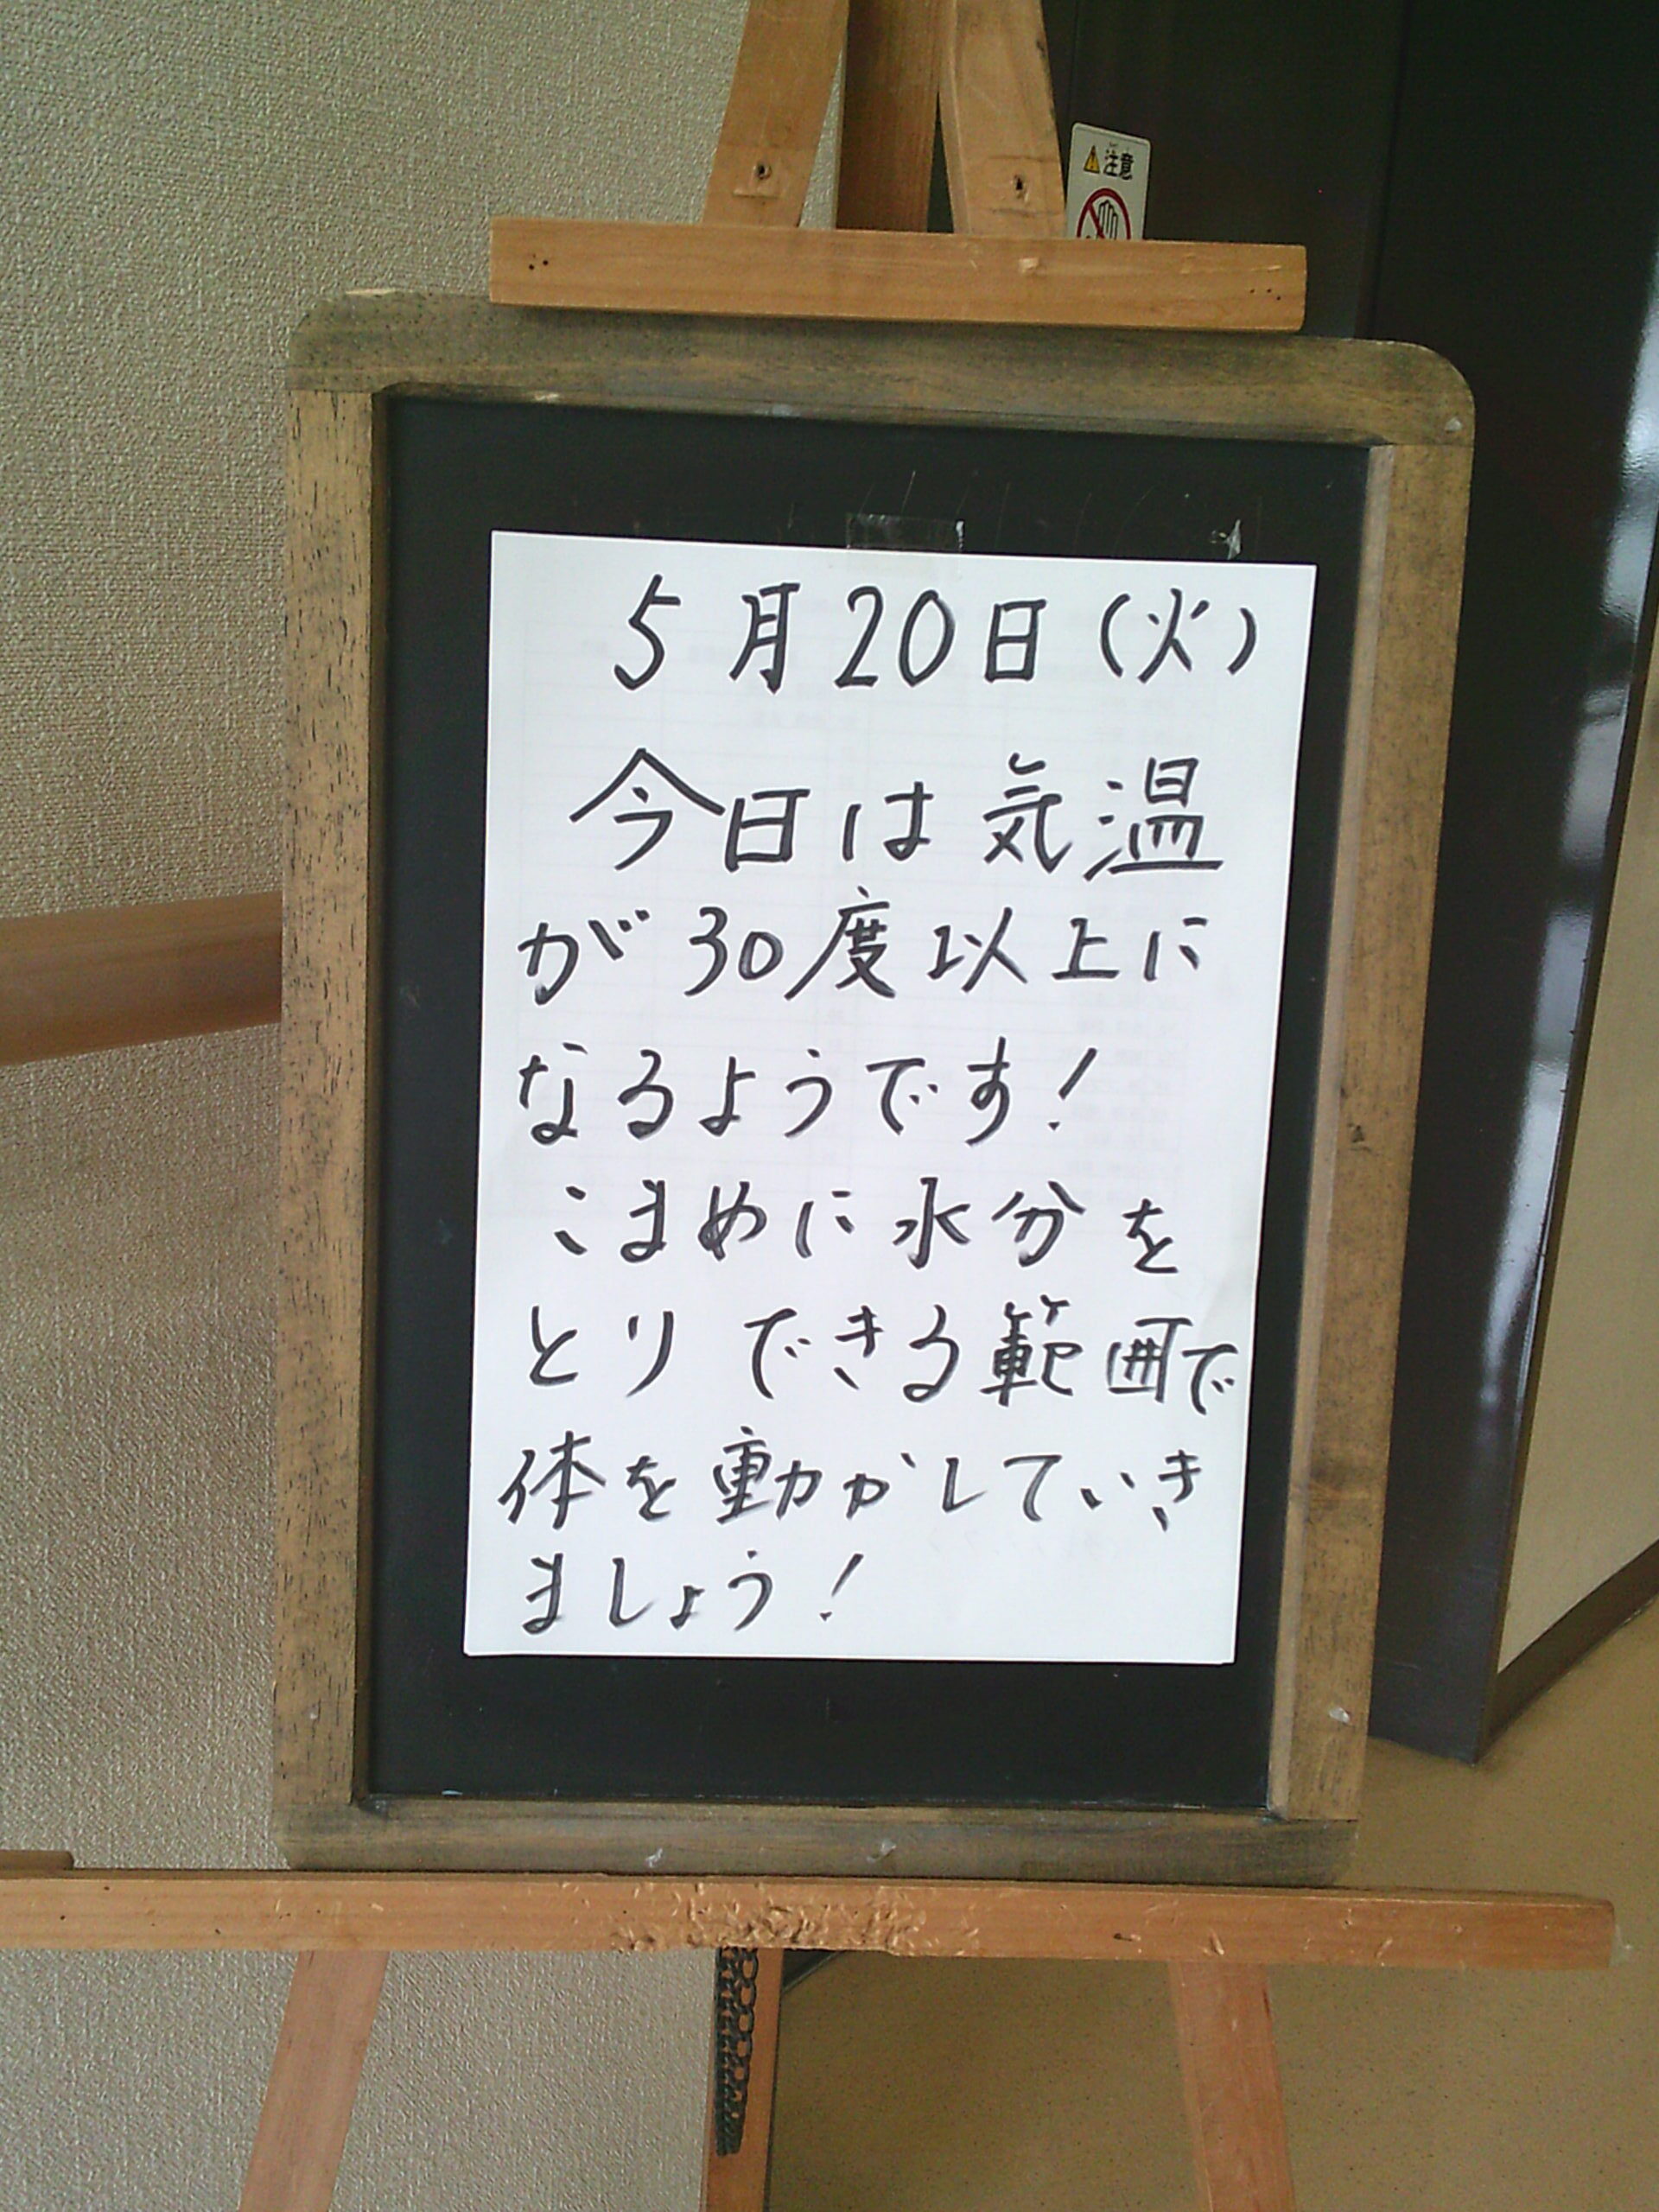 注意
5月20日(火)
今日は気温
が30度以上に
なるようです!
こまめに水分を
とりできる範囲で
体を動かしていき
ましょう!